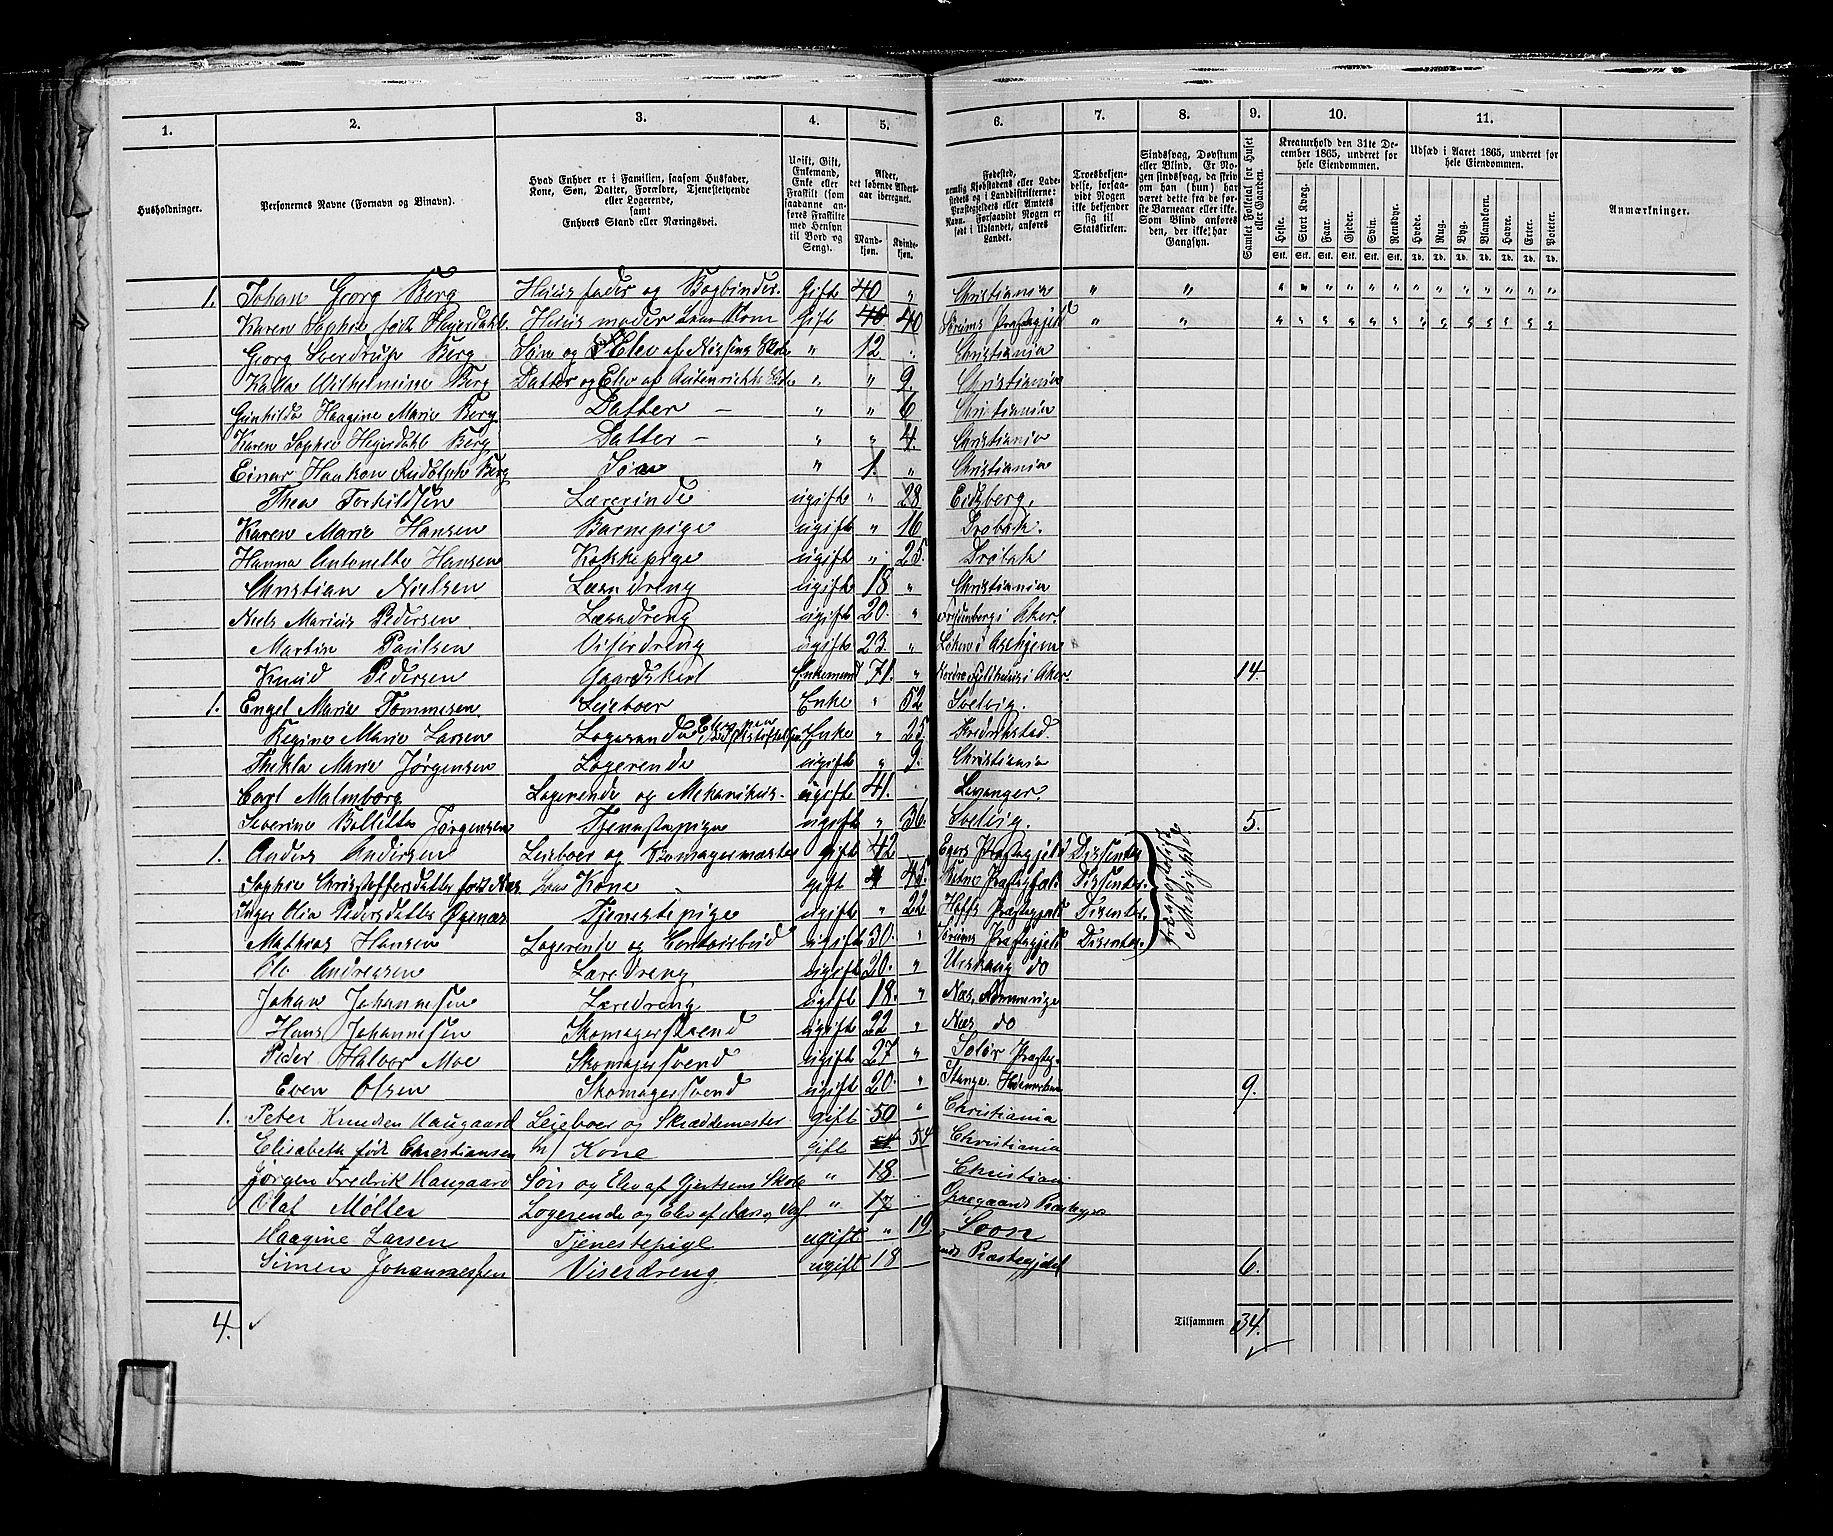 1. 2. 3. 4. 5. 6. 7. 8. 9. 10. 11.
Husholdninger. Personernes Navne (Fornavn og Binavn). Hvad Enhver er i Familien, saasom Husfader, Kone, Søn, Datter, Forældre, Tjenestetyende eller Logerende, samt Enhvers Stand eller Næringsvei. Ugift, Gift, Enkemand, Enke eller Fraskilt (saadanne anføres som Fraskilte med Hensyn til Bord og Seng). Alder, det løbende Aldersaar iberegnet. Mandkjøn. Kvindekjøn. Fødested, nemlig Kjøbstadens eller Ladestedets og i Landdistrikterne: Præstegjeldets eller Amtets Navn. Forsaavidt Nogen er født i Udlandet, anføres Landet. Troesbekjendelse, forsaavidt Nogen ikke bekjender sig til Statskirken. Sindssvag, Døvstum eller Blind. Er Nogen sindssvag, da skrives om han (hun) har været dette fra de første Barneaar eller ikke. Som Blind anføres den, der ikke har Gangsyn. Samlet Folketal for Huset eller Gaarden. Kreaturhold den 31te December 1865, underet for hele Eiendommen. Udsæd i Aaret 1865, underet for hele Eiendommen. Anmærkninger.
Heste. Stort Kvæg. Faar. Gjeder. Svin. Rensdyr. Hvede. Rug. Byg. Blandkorn. Havre. Erter. Poteter.
Stk. Stk. Stk. Stk. Stk. Stk. Td. Td. Td. Td. Td. Td. Td.
1. Johan Georg Berg Huusfader og Bogbinder. Gift 40 " Christiania " " " " " " " " " " " " " " "
Karen Sophie født Hejerdahl. Huusmoder hans Kone Gift 40 40 Sørums Præstegjeld " " " " " " " " " " " " " " "
Georg Sverdrup Berg Søn og Elev af Nissens Skole " 12 " Christiania
Kaia Wilhelmine Berg Datter og Elev af Autenrieths Skole " " 9. Christiania
Gunhilda Haagine Marie Berg Datter – " " 6 Christiania
Karen Sophie Hejerdahl Berg Datter – " " 4. Christiania
Einar Haakon Rudolph Berg Søn " 1. " Christiania
Thea Torkildsen Lærerinde ugift " 28 Eidsberg.
Karen Marie Hansen Barnepige ugift " 16 Drøbak.
Hanna Antonette Hansen Kokkepige ugift " 25. Drøbak
Christian Nielsen Læredreng ugift 18 " Christiania
Niels Marius Pedersen Læredreng ugift 20. " i Aker.
Martin Paulsen Viserdreng ugift 23. " Løken i
Knud Pedersen Gaardskarl Enkemand 71. " i Aker. 14.
1. Engel Marie Tommesen Leieboer Enke " 52 Svelvig.
Regine Marie Larsen Logerende Elev paa Enke " 25. Fredrikstad.
Thekla Marie Jørgensen Logerende ugift " 9. Christiania
Carl Malmborg Logerende og Mekanikus. ugift 41. Levanger.
Severine Bollette Jørgensen Tjenestepige ugift " 36. Svelvig. 5.
1. Anders Andersen Leieboer og Skomagermester gift 42 Egers Præstegjeld Dissenter
Sophie Christoffersdatter født Næs hans Kone gift 45. Præstegjeld Dissenter.
Inger Olia Pedersdatter Øgenæs Tjenestepige ugift " 22 Hoffs Præstegjeld Disenter.
Mathias Hansen Logerende og Contoirbud ugift 30. " Sørums Præstegjeld Disenter.
friapostolisk Menighed.
Ole Andresen Læredreng ugift 20. " Urskoug do
Johan Johannesen Læredreng ugift 18. " Næs, Romerige
Hans Johannesen Skomagersvend ugift 22 " Næs do
Peder Halvor Moe Skomagersvend ugift 27 " Solør Præsteg.
Even Olsen Skomagersvend ugift 20. " Stange Hedemarken 9.
1. Peter Knudsen Haugaard Leieboer og Skræddemester gift 50 " Christiania
Elisabeth født Christiansen h/ Kone gift 54 54 Christiania
Jørgen Fredrik Haugaard Søn og Elev af Gjertsens Skole " 18 Christiani
Olaf Møller Logerende og Elev af Aars og Vos " 17 Præstegj
Haagine Larsen Tjenestepige ugift " 19. Soon
Simen Johannessen Viserdreng ugift 18 Præstegjeld 6.
4. Tilsammen 34.